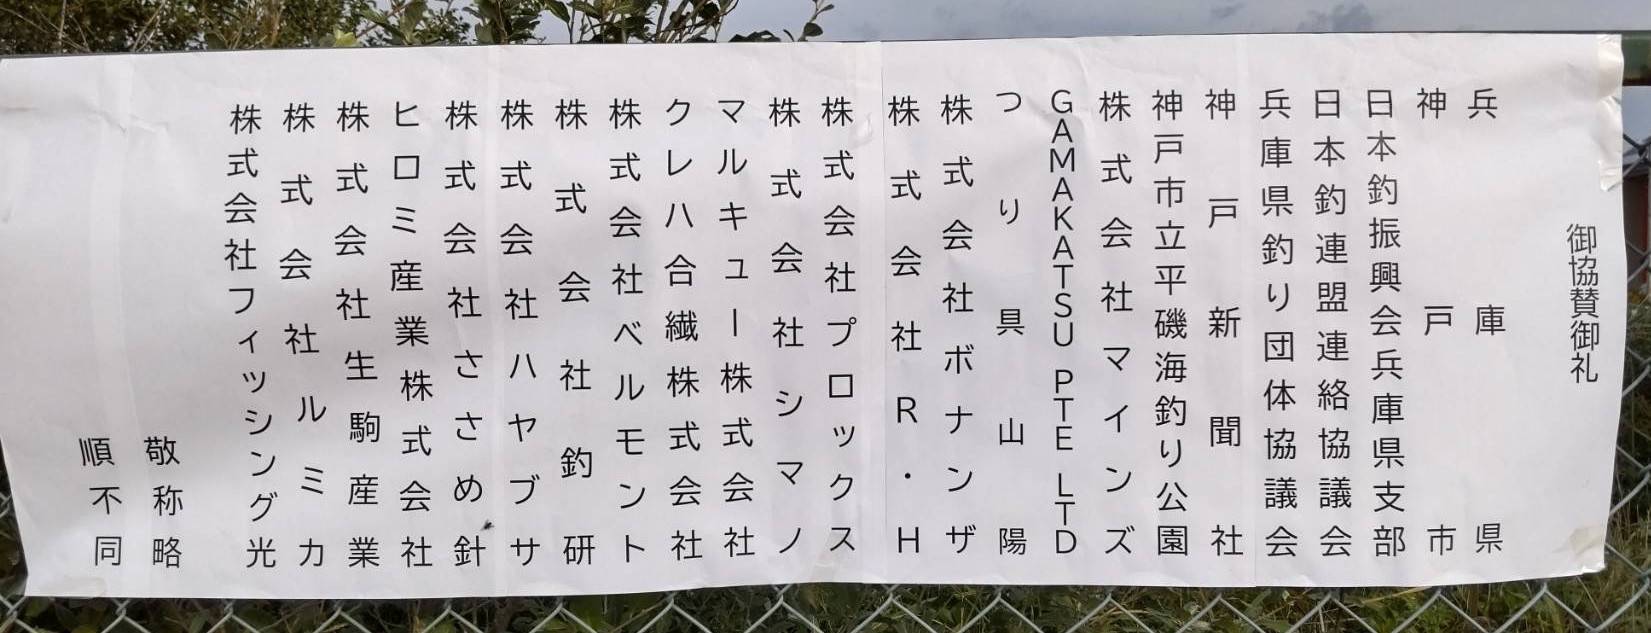 御協賛御礼
兵庫県
神戸市
日本釣振興会兵庫県支部
日本釣連盟連絡協議会
兵庫県釣り団体協議会
神戸新聞社
神戸市立平磯海釣り公園
株式会社マインズ
GAMAKATSU PTE LTD
つり具山陽
株式会社ボナンザ
株式会社R・H
株式会社プロックス
株式会社シマノ
マルキュー株式会社
クレハ合繊株式会社
株式会社ベルモント
株式会社釣研
株式会社ハヤブサ
株式会社ささめ針
ヒロミ産業株式会社
株式会社生駒産業
株式会社ルミカ
株式会社フィッシング光
敬称略
順不同